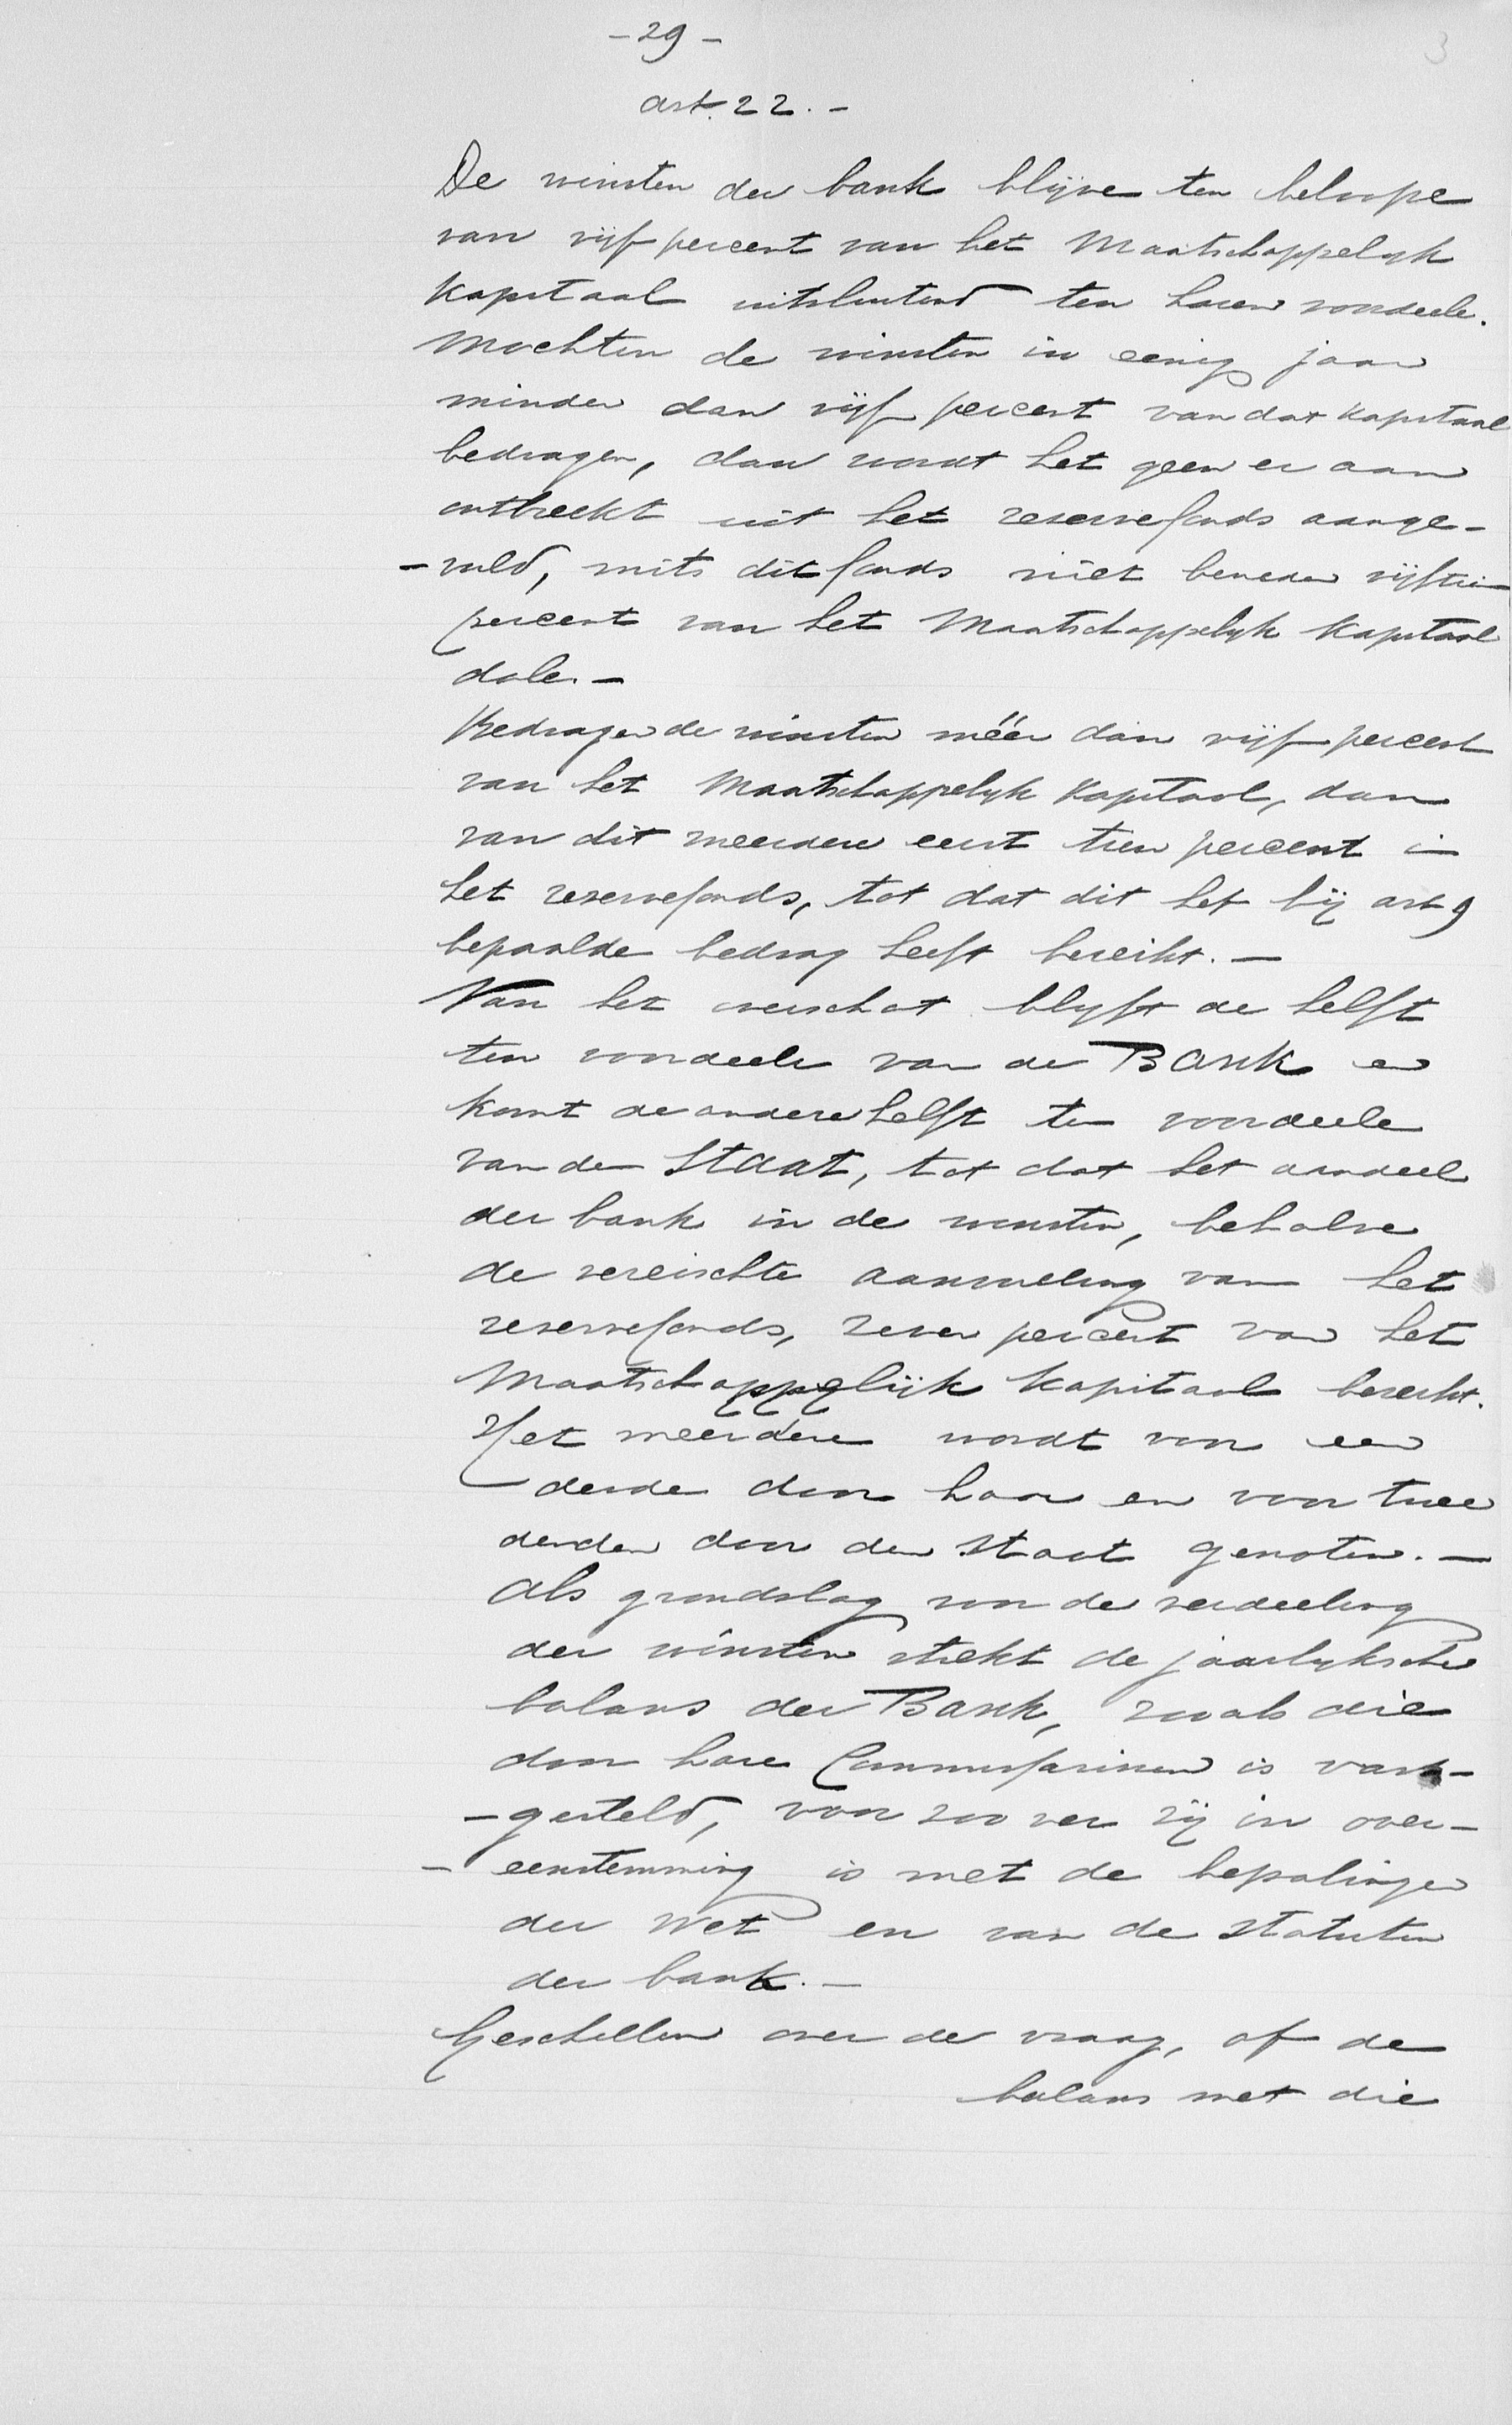 - 29 -
3
art. 22. -
De winsten der bank blijve ten beloope
van vijf percent van het Maatschappelijk
Kapitaal uitsluitend ten haren voordeele.
Mochten de winsten in eenig jaar
minder dan vijf percent van dat Kapitaal
bedragen, dan wordt het geen er aan
ontbreekt uit het reservefonds aange-
- vuld, mits dit fonds niet beneden vijftien
percent van het Maatschappelijk Kapitaal
dale. -
Bedragen de winsten méér dan vijf percent
van het Maatschappelijk Kapitaal, dan
van dit meerdere eerst tien percent in
het reservefonds, tot dat dit het bij art 9
bepaalde bedrag heeft bereikt. -
Van het overschot blijft de helft
ten voordeele van de Bank en
komt de andere helft ten voordeele
van den Staat, tot dat het aandeel
der bank in de winsten, behalve
de vereischte aanvulling van het
reservefonds, zeven percent van het
Maatschappelijk Kapitaal bereikt.
Het meerdere wordt voor een
derde door haar en voor twee
derden door den Staat genoten. -
Als grondslag voor de verdeeling
der winsten strekt de jaarlijksche
balans der Bank, zooals die
door hare Commissarissen is vast-
- gesteld, voor zoo ver zij in over-
- eenstemming is met de bepalingen
der Wet en van de statuten
der bank. -
Geschillen over de vraag, of de
balans met die